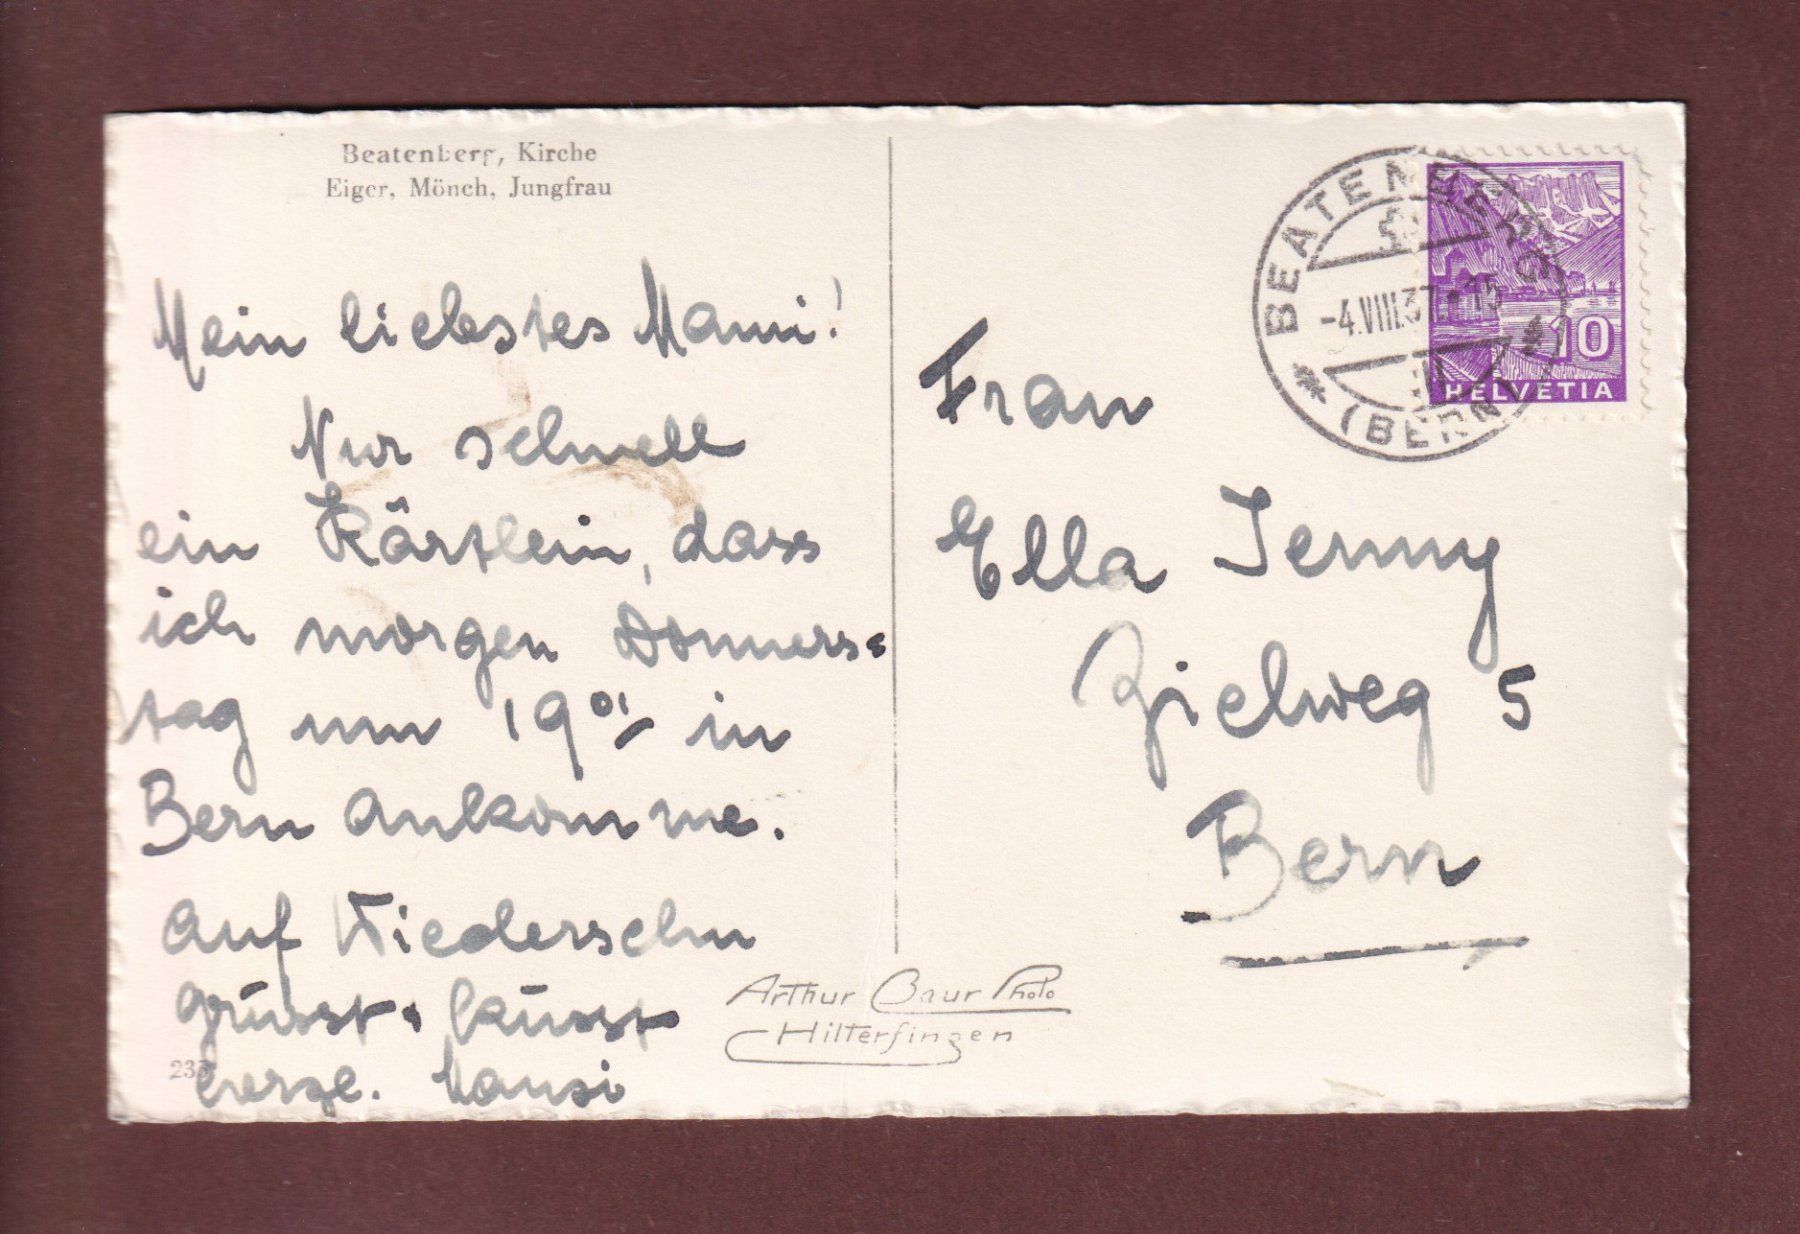 Beatenberg, Kirche
Eiger, Mönch, Jungfrau
Mein liebstes Mami!
Nur schnell
ein Kärtlein, dass
ich morgen Donners-
tag um 19⁰¹ in
Bern ankomme.
Auf Wiedersehn
grüsst & küsst
herzl. Hansi
233
Arthur Baur Photo
Hilterfingen
BEATENBERG
-4.VIII.37
(BERN)
10
HELVETIA
Frau
Ella Jenny
Zielweg 5
Bern